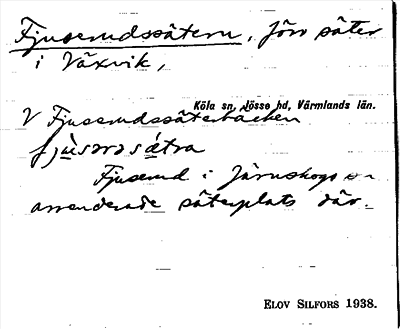 Fjuserudssätern, förr säter
i Växvik,
Köla sn, Jösse hd, Värmlands län.
V Fjuserudssäterbacken
fjùsərəsǽtra
Fjuserud i Järnskogs sn
arrenderade säterplats där.
ELOV SILFORS 1938.